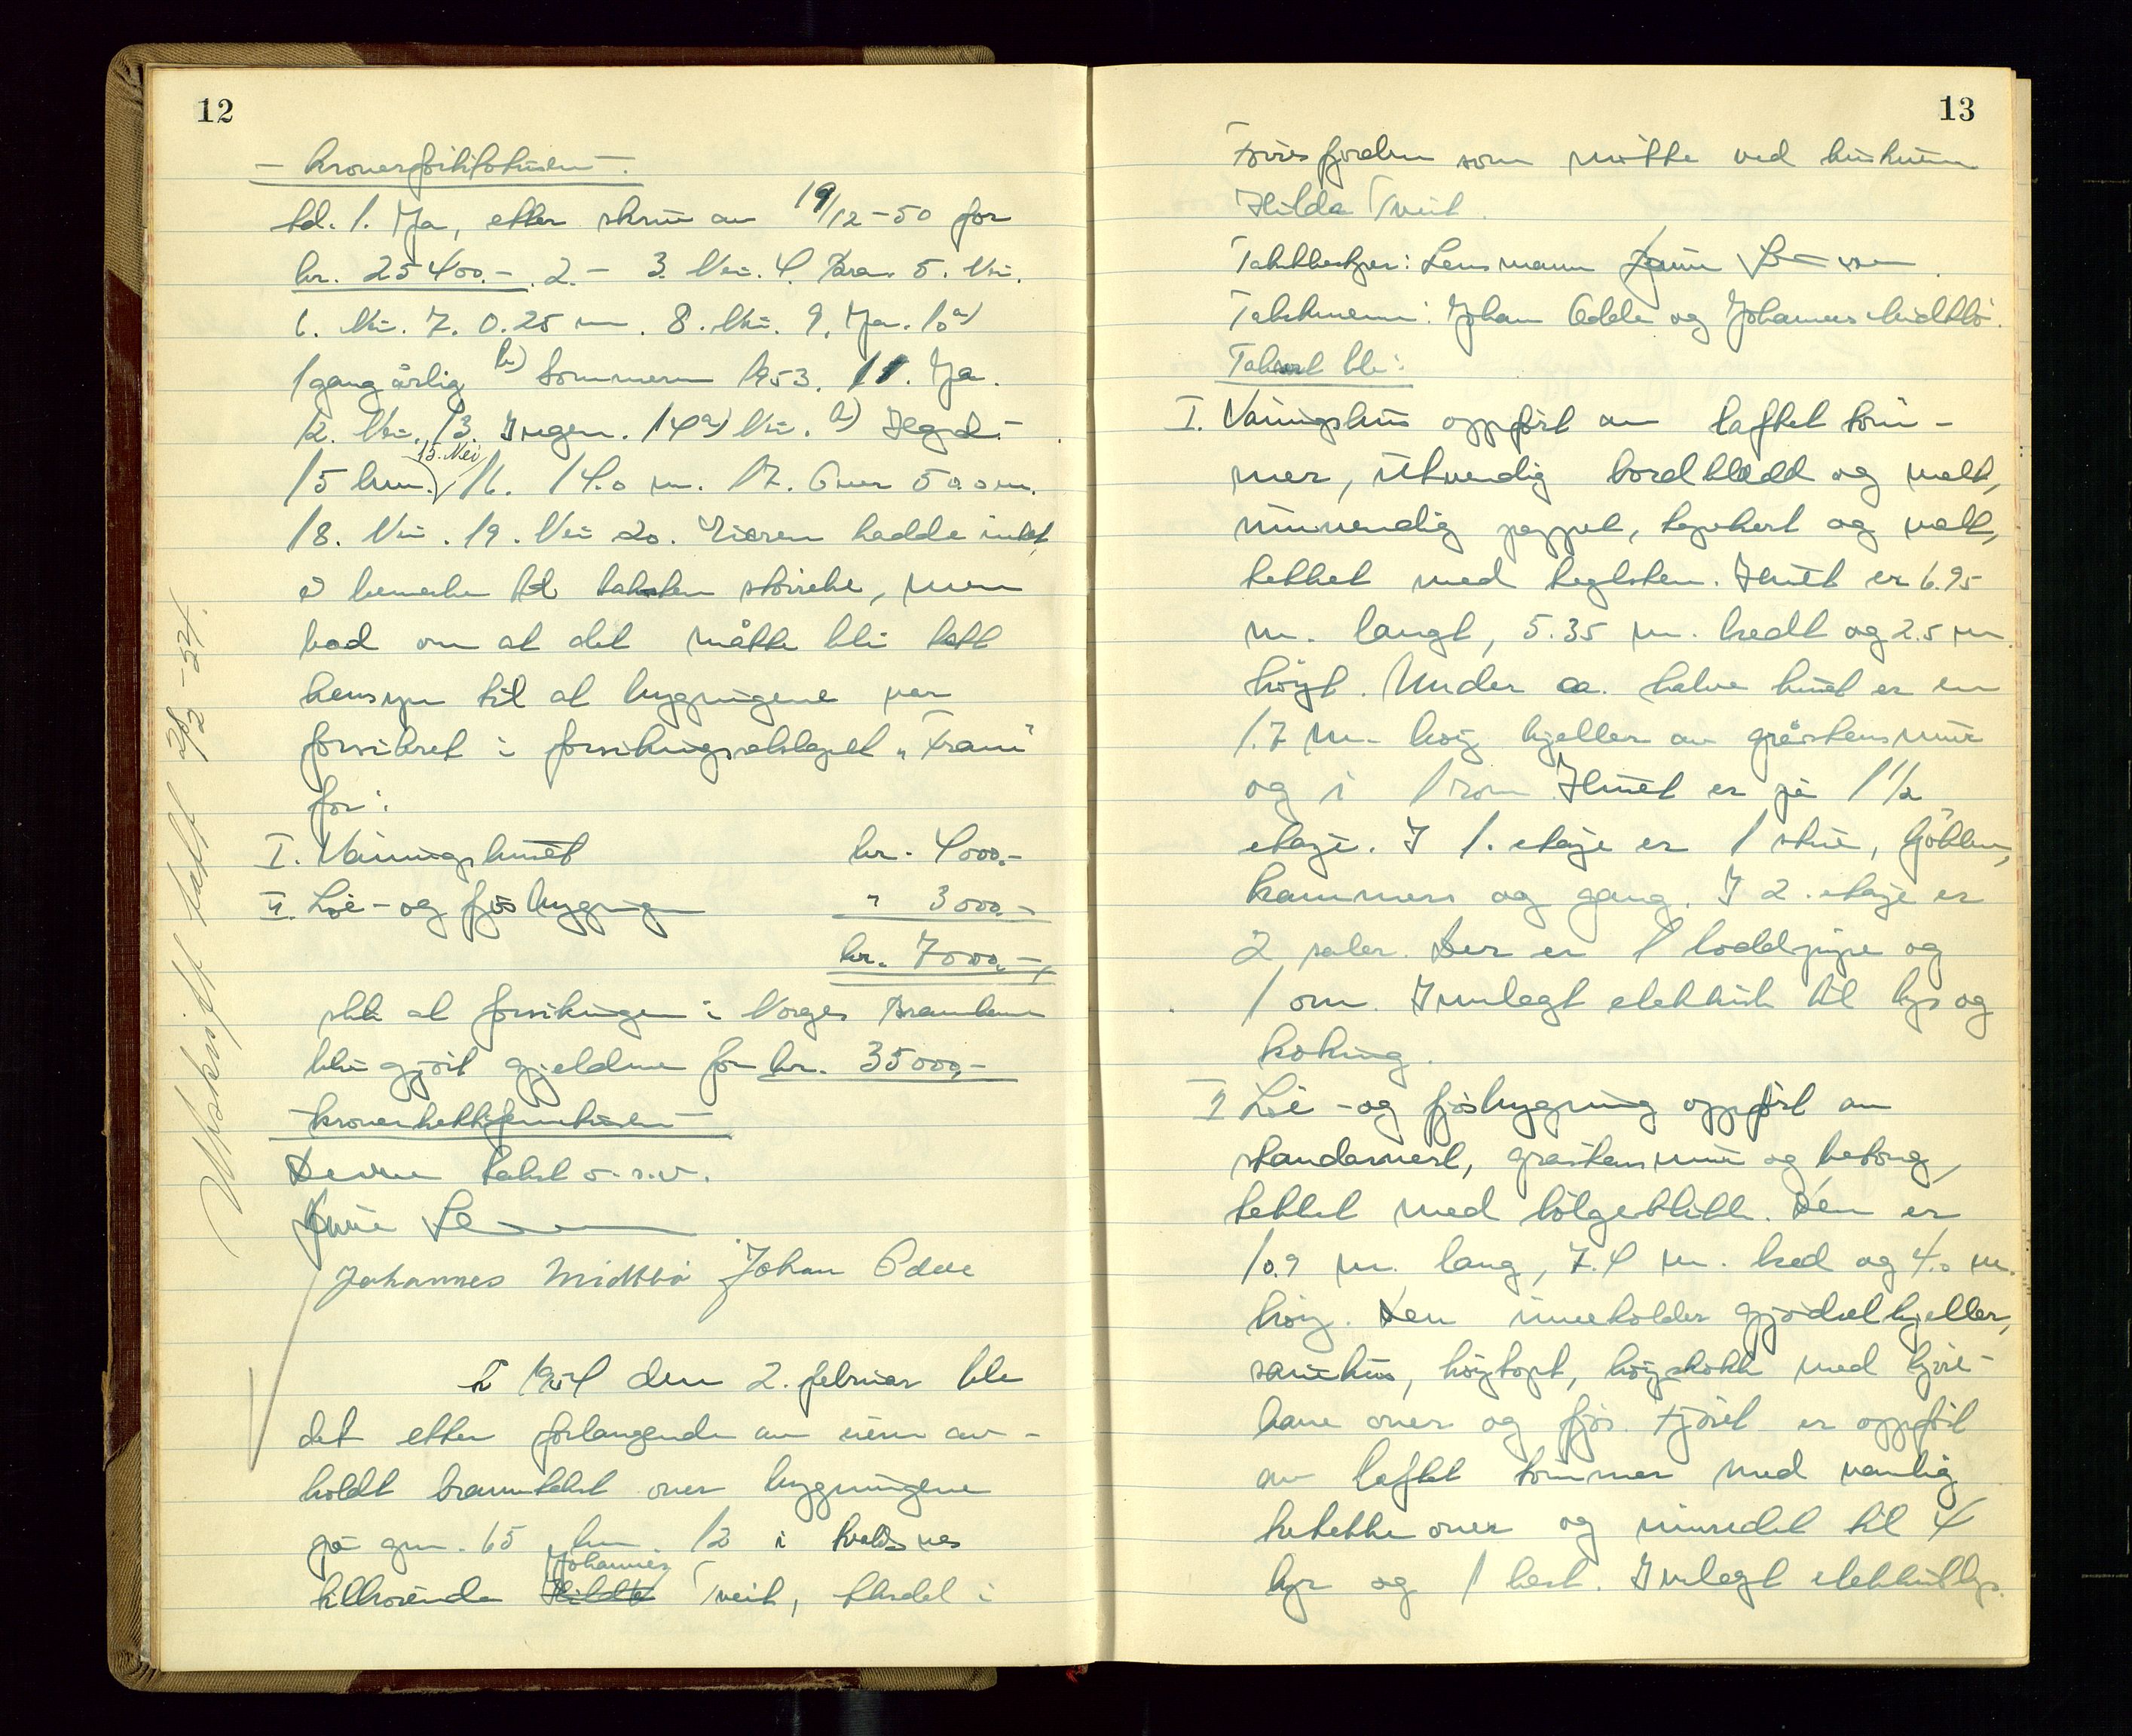 12
- kronerførtifotusen -
td. 1. Ja, etter skriv av 19/12-50 for
kr. 25400.- 2. - 3. Nei. 4. Bra. 5. Nei.
6. Nei. 7. 0.25 m. 8. Nei. 9. Ja. 10a)
1 gang årlig b) Sommeren 1953. 11. Ja.
12. Nei. 13. Ingen. 14a) Nei. b)
15. Nei
15 km. 16. 14.0 m. 17. Over 500 m.
18. Nei. 19. Nei 20. Eieren hadde intet
å bemerke til takstens størrelse, men
bad om at det måtte bli tatt
hensyn til at bygningene var
forsikret i forsikringsselskapet "Fram"
for:
I. Våningshuset kr. 4000.-
II. Løe- og fjøsbygning " 3000.-
kr. 7000.-
slik at forsikringen i Norges Brannkasse
blir gjort gjeldene for kr. 35000,-
- kronertrettifemtusen -
Denne takst o.s.v.
Johannes Midtbø Johan Odde
Utskrift sendt 28/2-54.
År 1954 den 2. februar ble
det etter forlangende av eieren av-
holdt branntakst over bygningene
på gnr. 65 bnr. 12 i Kvaldsnes
Johannes
tilhørende Hilda Tveit, Årdal i
13
Førresfjorden som møtte ved hustruen
Hilda Tveit.
Takstbestyrer: Lensmann
Takstmenn: Johan Odde og Johannes Midtbø.
Taksert ble:
I. Våningshus oppført av laftet tøm-
mer, utvendig bordkledd og malt,
innvendig pappet, tapetsert og malt,
tekket med teglsten. Huset er 6.95
m. langt, 5.35 m. bredt og 2.5 m.
høyt. Under ca. halve huset er en
1.7 m. høy kjeller av gråstensmur
og i 1 rom. Huset er på 1 1/2
etasje. I 1. etasje er 1 stue, kjøkken,
kammers og gang. I 2. etasje er
2 saler. Der er 1 loddpipe og
1 ovn. Innlagt elektrisk til lys og
koking.
II Løe- og fjøsbygning oppført av
standerverk, gråstensmur og betong,
tekket med bølgeblikk. Den er
10.9 m. lang, 7.4 m. bred og 4.0 m.
høy. Den inneholder gjødselkjeller,
sauehus, høytopt, høystokk med kjøre-
bane over og fjøs. Fjøset er oppført
av laftet tømmer med vanlig
tretekke over og innredet til 4
kyr og 1 hest. Innlagt elektrisk lys.